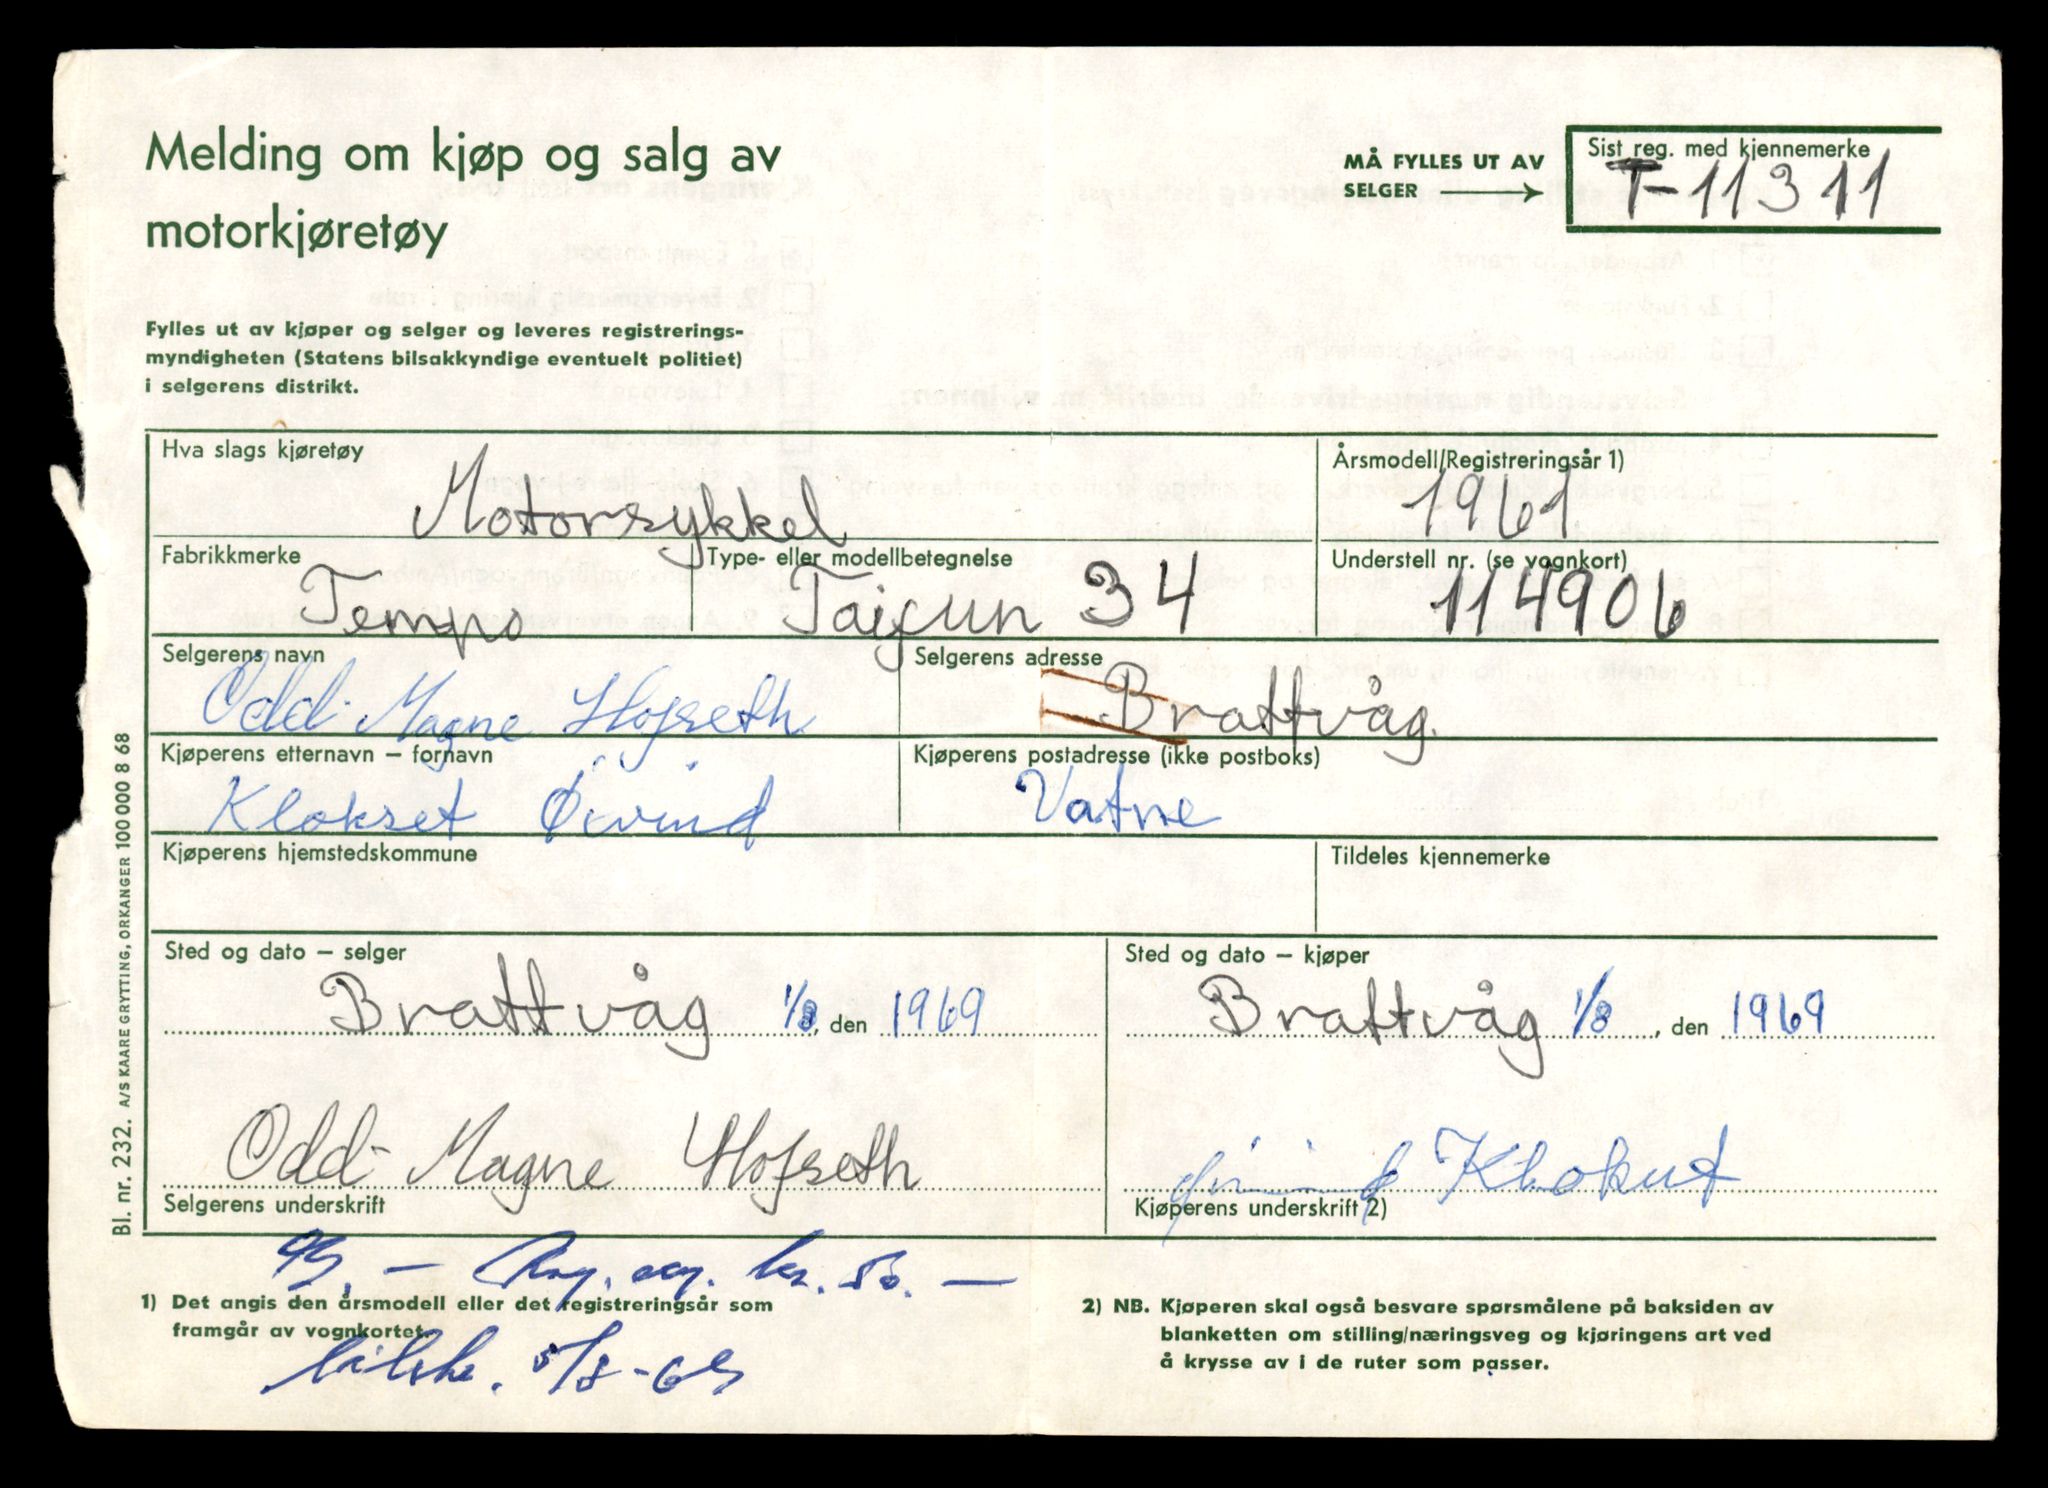 Melding om kjøp og salg av
motorkjøretøy
MÅ FYLLES UT AV
SELGER
Sist reg. med kjennemerke
T-11311
Fylles ut av kjøper og selger og leveres registrerings-
myndigheten (Statens bilsakkyndige eventuelt politiet)
i selgerens distrikt.
Hva slags kjøretøy
Motorsykkel
Årsmodell/Registreringsår 1)
1961
Fabrikkmerke
Tempo
Type- eller modellbetegnelse
Taifun 34
Understell nr. (se vognkort)
114906
Selgerens navn
Odd-Magne Hofseth
Selgerens adresse
Brattvåg.
Kjøperens etternavn – fornavn
Klokset Øivind
Kjøperens postadresse (ikke postboks)
Vatne
Kjøperens hjemstedskommune
Tildeles kjennemerke
Sted og dato – selger
Brattvåg 1/8, den 1969
Sted og dato – kjøper
Brattvåg 1/8, den 1969
Odd-Magne Hofseth
Selgerens underskrift
Øivind Klokset
Kjøperens underskrift 2)
kr. 50.—
1) Det angis den årsmodell eller det registreringsår som
framgår av vognkortet.
5/8-69
2) NB. Kjøperen skal også besvare spørsmålene på baksiden av
blanketten om stilling/næringsveg og kjøringens art ved
å krysse av i de ruter som passer.
Bl. nr. 232. A/S KAARE GRYTTING, ORKANGER 100 000 8 68